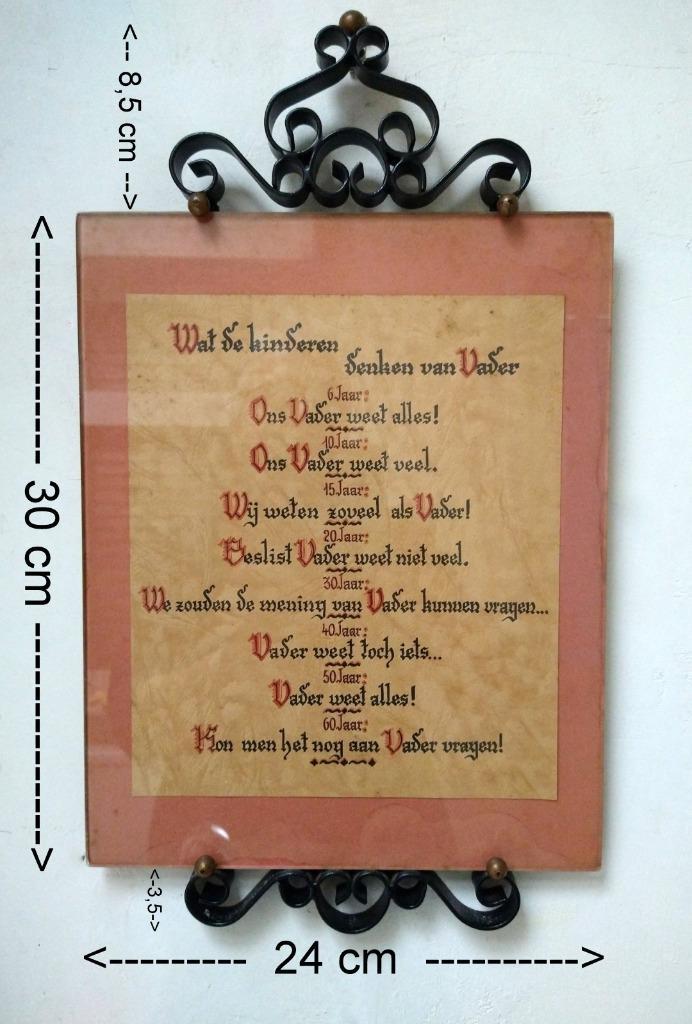 <-- 8,5 cm -->
Wat de kinderen
denken van Vader
6 Jaar:
Ons Vader weet alles!
10 Jaar:
Ons Vader weet veel.
15 Jaar:
Wij weten zoveel als Vader!
20 Jaar:
Beslist Vader weet niet veel.
30 Jaar:
We zouden de mening van Vader kunnen vragen...
40 Jaar:
Vader weet toch iets...
50 Jaar:
Vader weet alles!
60 Jaar:
Kon men het nog aan Vader vragen!
<---------- 30 cm ---------->
<-3,5->
<--------- 24 cm ---------->